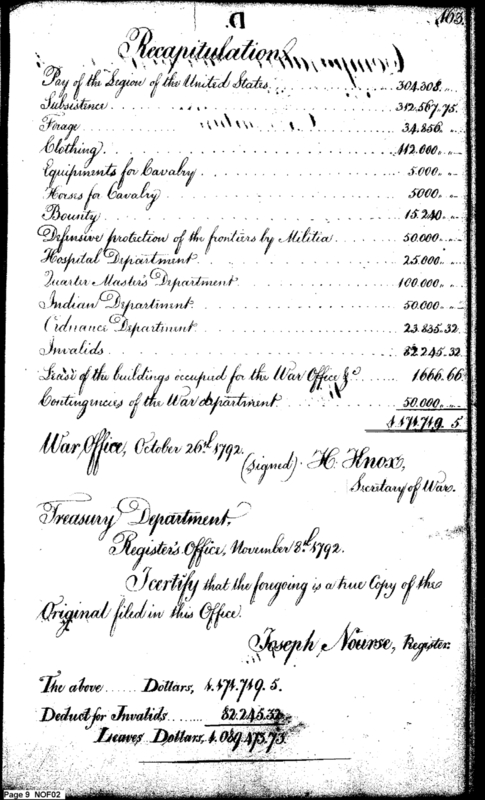 D.
163
Recapitulation
Pay of the Legion of the United States . . . 304.308. „ „
Subsistence . . . 312.567.75.
Forage . . . 34.856. „
Clothing . . . 112.000. „ „
Equipments for Cavalry . . . 5.000. „ „
Horses for Cavalry . . . 5000. „ „
Bounty . . . 15.240. „ „
Defensive protection of the frontiers by Militia . . . 50.000. „ „
Hospital Department . . . 25.000. „ „
Quarter Master's Department . . . 100.000. „ „
Indian Department . . . 50.000. „ „
Ordnance Department . . . 23.835.32
Invalids . . . 82.245.32
Lease of the buildings occupied for the War Office &c . . . 1666.66
Contingencies of the War department . . . 50.000. „ „
1.171.719. 5
War Office, October 26th 1792.
(signed). H. Knox,
Secretary of War.
Treasury Department,
Register's Office, November 8th 1792.
I certify that the foregoing is a true Copy of the
Original filed in this Office.
Joseph Nourse, Register.
The above . . . . . Dollars, 1.171.719. 5.
Deduct for Invalids . . . . . . 82.245.32
Leaves Dollars, 1.089.473.73.
Page 9 NOF02